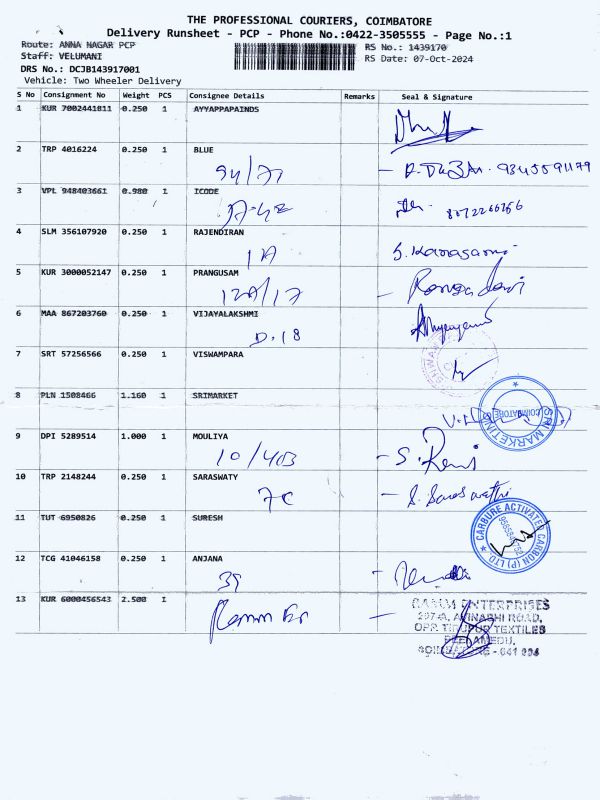 THE PROFESSIONAL COURIERS, COIMBATORE
Delivery Runsheet - PCP - Phone No.:0422-3505555 - Page No.:1
Route: ANNA NAGAR PCP
RS No.: 1439170
Staff: VELUMANI
RS Date: 07-Oct-2024
DRS No.: DCJB143917001
Vehicle: Two Wheeler Delivery
S No Consignment No Weight PCS Consignee Details Remarks Seal & Signature
1 KUR 7002441811 0.250 1 AYYAPPAPAINDS
2 TRP 4016224 0.250 1 BLUE
94/77
3 VPL 948403661 0.980 1 ICODE
4 SLM 356107920 0.250 1 RAJENDIRAN
1A
5 KUR 3000052147 0.250 1 PRANGUSAM
12A/17
6 MAA 867203760 0.250 1 VIJAYALAKSHMI
D.18
7 SRT 57256566 0.250 1 VISWAMPARA
8 PLN 1508466 1.160 1 SRIMARKET
MARKETING COIMBATORE
9 DPI 5289514 1.000 1 MOULIYA
10/403 - S. Reni
10 TRP 2148244 0.250 1 SARASWATY
7C - S. Saraswathi
11 TUT 6950826 0.250 1 SURESH
CARBURE ACTIVATED CARBON (P) LTD.
12 TCG 41046158 0.250 1 ANJANA
39
13 KUR 6000456543 2.500 1
ENTERPRISES
AVINASHI ROAD,
OPP. TIRUPUR TEXTILES
PEELAMEDU,
COIMBATORE - 641 004